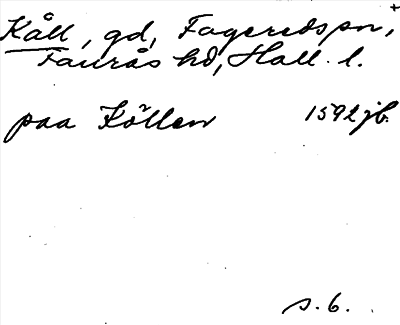 +
Kåll, gd, Fagereds sn,
Faurås hd, Hall. l.
paa Kóllen 1592 jb.
s. 6.